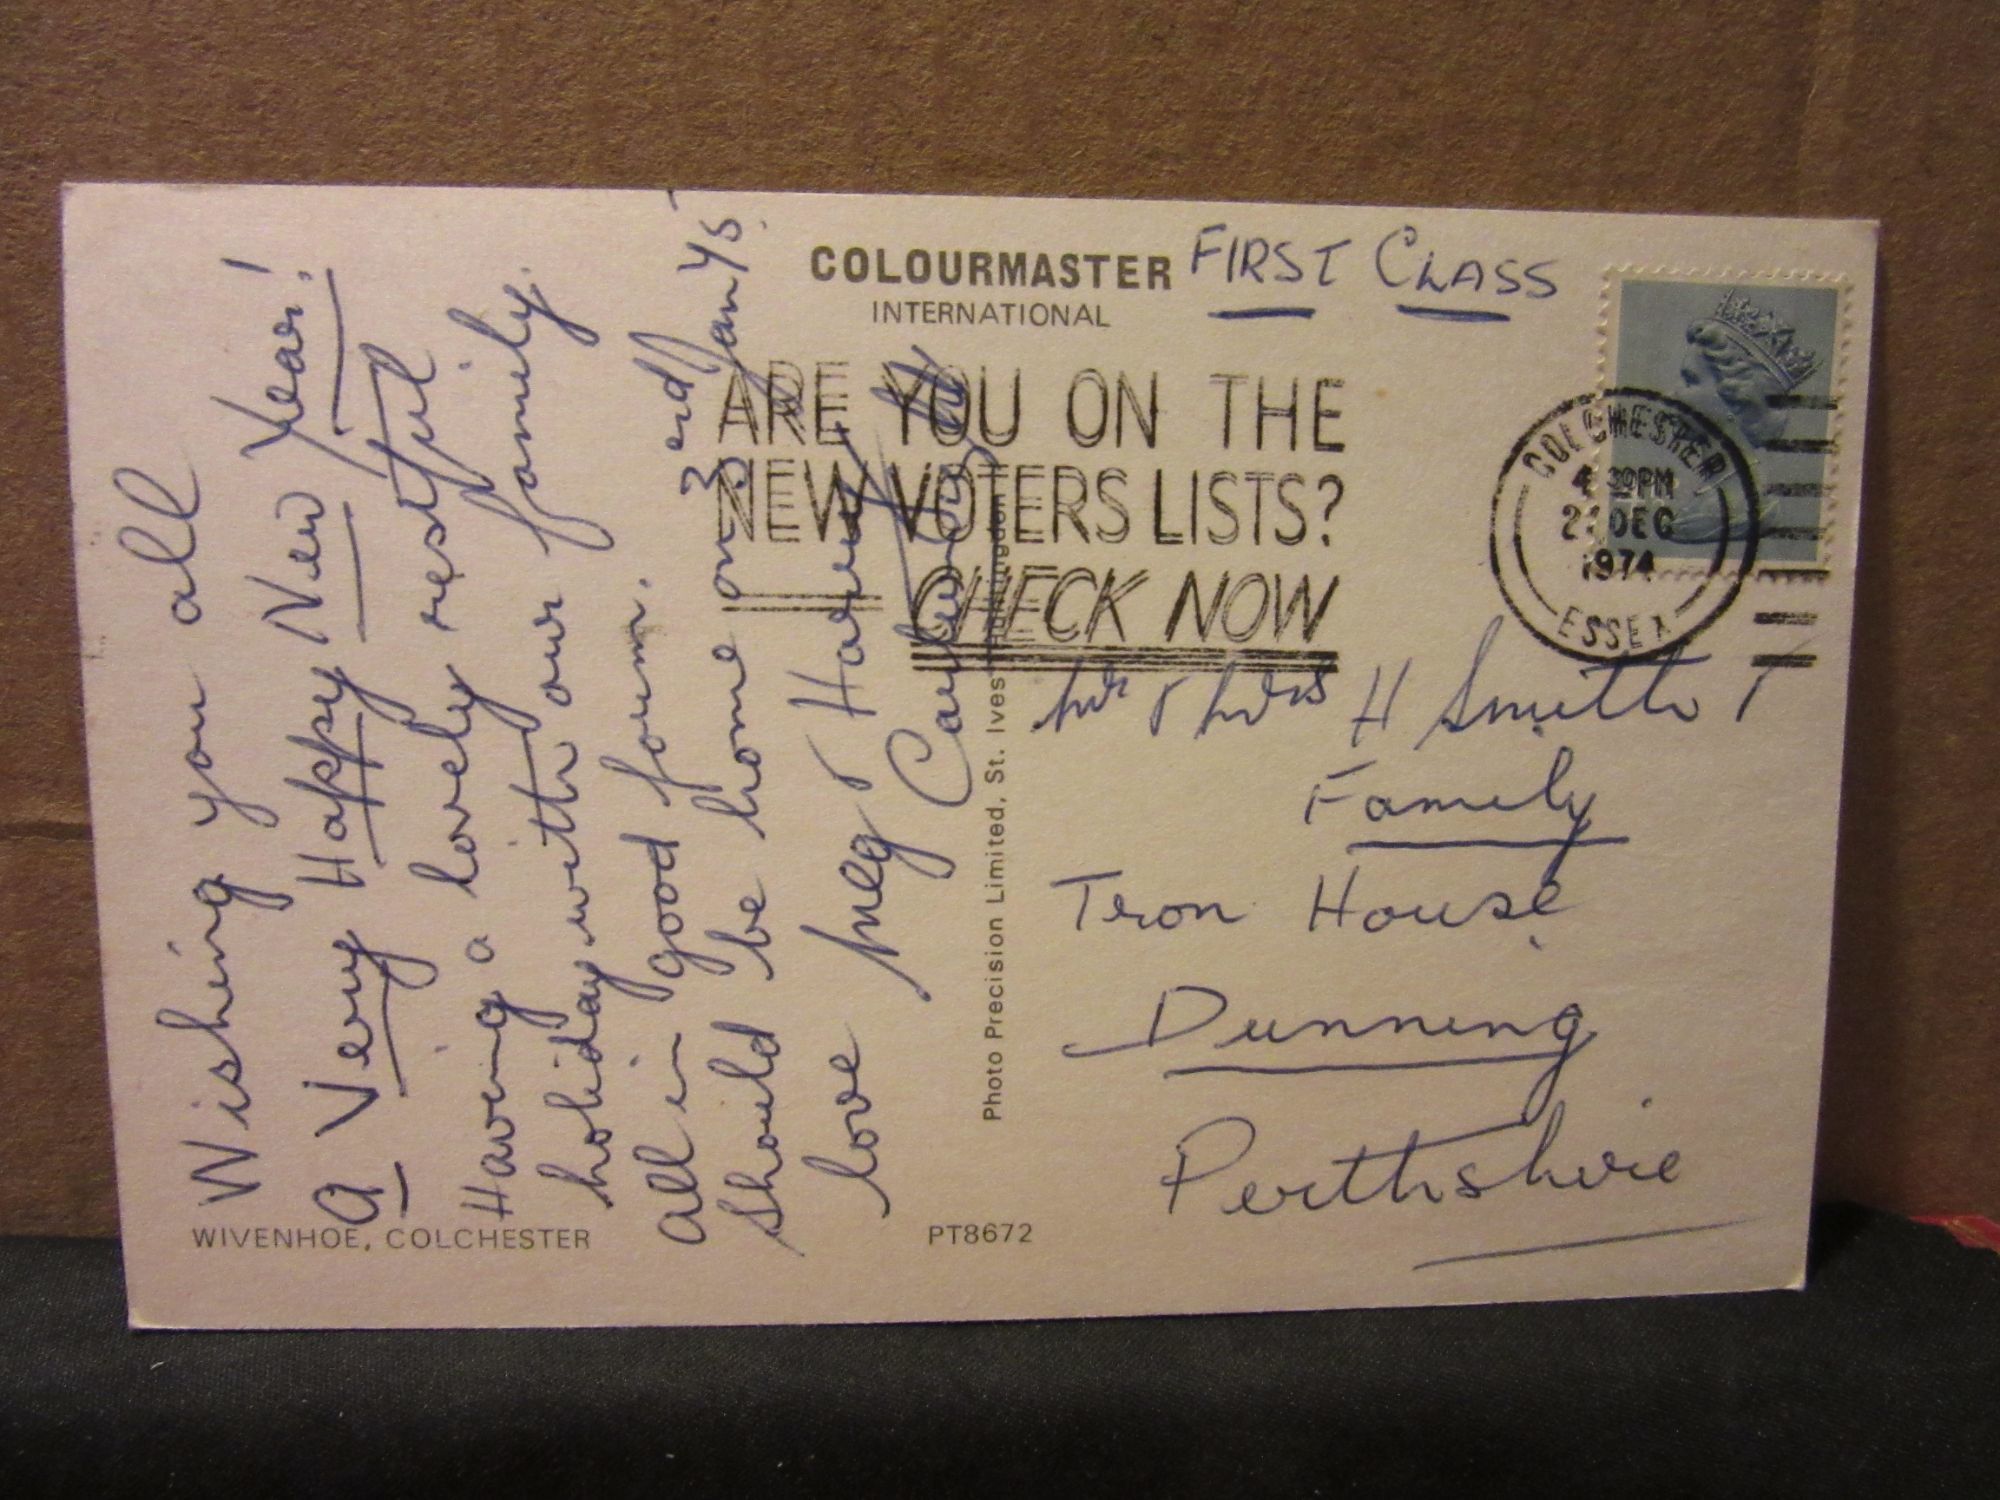 COLOURMASTER
INTERNATIONAL
FIRST CLASS
ARE YOU ON THE
NEW VOTERS LISTS?
CHECK NOW
COLCHESTER
4 30PM
2 DEC
1974
ESSEX
Wishing you all
a Very Happy New Year!
Having a lovely restful
holiday with our family.
All in good form.
Should be home on 3rd Jan 75.
love Meg & Harry
Mr & Mrs H Smith &
Family
Tron House
Dunning
Perthshire
Photo Precision Limited, St. Ives, Huntingdon
WIVENHOE, COLCHESTER
PT8672